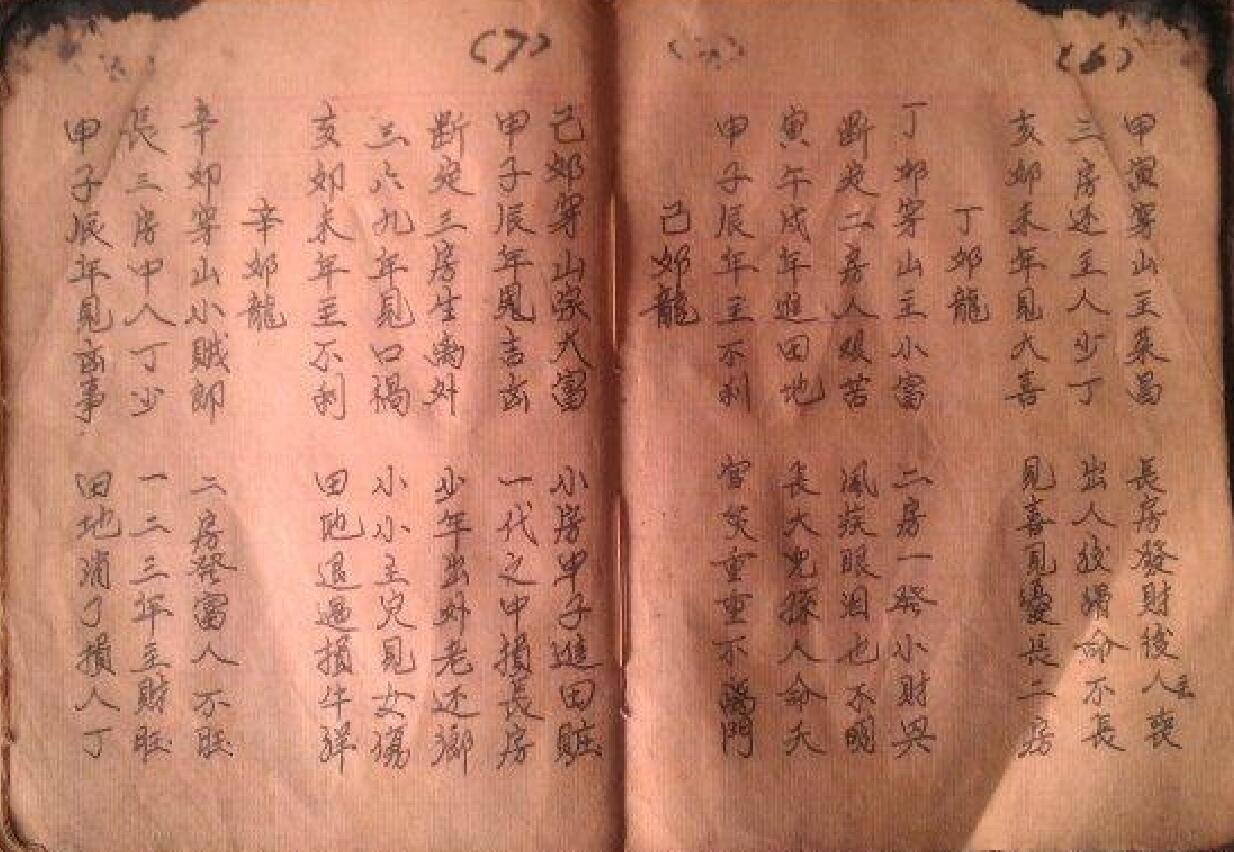 (6)
甲寅穿山主荣昌 長房發財後人主喪
三房还主人少丁 出人彼損命不長
亥卯未年見大喜 見喜見憂長二房
丁卯龍
丁卯穿山主小富 二房一發小財興
断定二房人艰苦 風疾眼泪也不明
寅午戌年進田地 長大兇探人命夭
甲子辰年主不利 官災重重不离門
己卯龍
(7)
己卯穿山深大富 小房甲子進田庄
甲子辰年見吉凶 一代之中損長房
断定三房生离外 少年出外老还鄉
三六九年見口禍 小小主災見女傷
亥卯未年主不利 田地退過損牛羊
辛卯龍
辛卯穿山小賊郎 二房發富人不旺
長三房中人丁少 一二三年主財旺
甲子辰年見凶事 田地消了損人丁